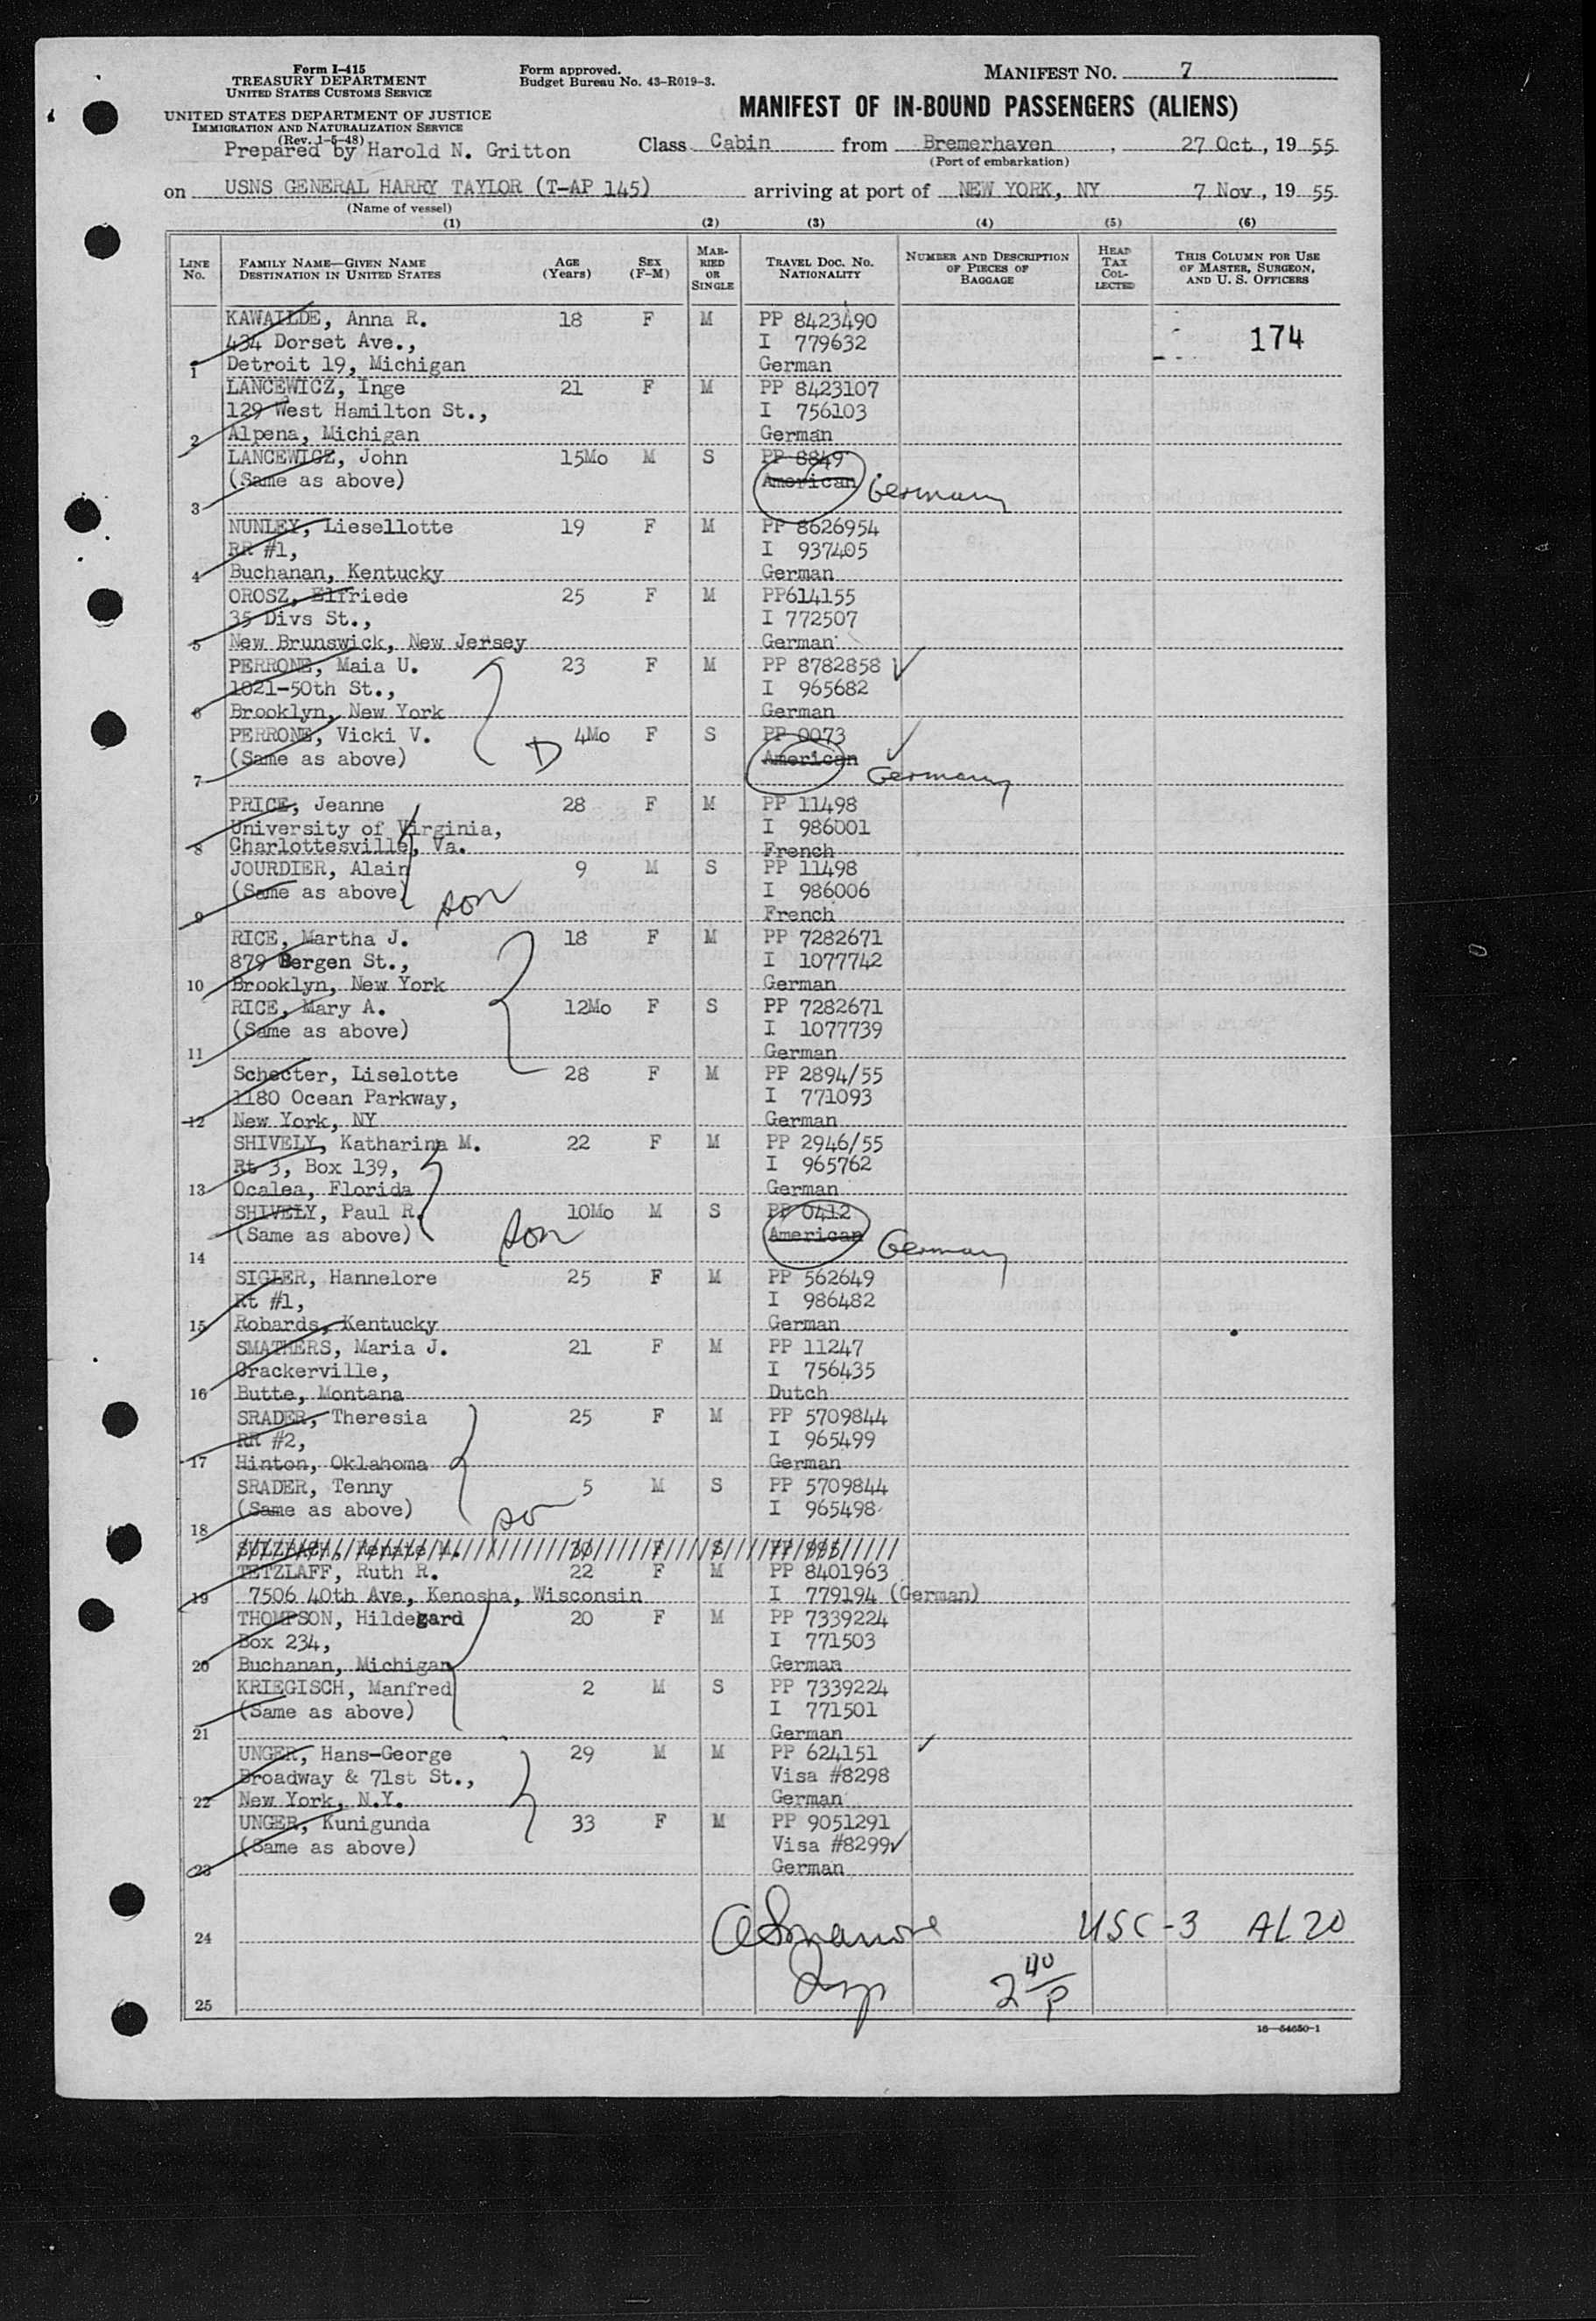 Form I-415
TREASURY DEPARTMENT
UNITED STATES CUSTOMS SERVICE
UNITED STATES DEPARTMENT OF JUSTICE
IMMIGRATION AND NATURALIZATION SERVICE
(Rev. 1-5-48)
Prepared by Harold N. Gritton
Form approved.
Budget Bureau No. 43-R019-3.
MANIFEST NO. 7
MANIFEST OF IN-BOUND PASSENGERS (ALIENS)
Class Cabin from Bremerhaven, 27 Oct, 19 55
(Port of embarkation)
on USNS GENERAL HARRY TAYLOR (T-AP 145) arriving at port of NEW YORK, NY 7 Nov, 19 55
(Name of vessel)
(1) (2) (3) (4) (5) (6)
LINE No. FAMILY NAME—GIVEN NAME DESTINATION IN UNITED STATES AGE (Years) SEX (F-M) MARRIED OR SINGLE TRAVEL DOC. NO. NATIONALITY NUMBER AND DESCRIPTION OF PIECES OF BAGGAGE HEAD TAX COLLECTED THIS COLUMN FOR USE OF MASTER, SURGEON, AND U. S. OFFICERS
KAWAILDE, Anna R. 18 F M PP 8423490
434 Dorset Ave., I 779632 174
1 Detroit 19, Michigan German
LANCEWICZ, Inge 21 F M PP 8423107
129 West Hamilton St., I 756103
2 Alpena, Michigan German
LANCEWICZ, John 15Mo M S PP 8849
(Same as above) American Germany
3
NUNLEY, Liesellotte 19 F M PP 8626954
RR #1, I 937405
4 Buchanan, Kentucky German
OROSZ, Elfriede 25 F M PP614155
35 Divs St., I 772507
5 New Brunswick, New Jersey German
PERRONE, Maia U. 23 F M PP 8782858
1021-50th St., I 965682
6 Brooklyn, New York German
PERRONE, Vicki V. D 4Mo F S PP 0073
(Same as above) American Germany
7
PRICE, Jeanne 28 F M PP 11498
University of Virginia, I 986001
8 Charlottesville, Va. French
JOURDIER, Alain 9 M S PP 11498
(Same as above) son I 986006
9 French
RICE, Martha J. 18 F M PP 7282671
879 Bergen St., I 1077742
10 Brooklyn, New York German
RICE, Mary A. 12Mo F S PP 7282671
(Same as above) I 1077739
11 German
Schecter, Liselotte 28 F M PP 2894/55
1180 Ocean Parkway, I 771093
12 New York, NY German
SHIVELY, Katharina M. 22 F M PP 2946/55
Rt 3, Box 139, I 965762
13 Ocalea, Florida German
SHIVELY, Paul R. 10Mo M S PP 0412
(Same as above) son American Germany
14
SIGLER, Hannelore 25 F M PP 562649
Rt #1, I 986482
15 Robards, Kentucky German
SMATHERS, Maria J. 21 F M PP 11247
Crackerville, I 756435
16 Butte, Montana Dutch
SRADER, Theresia 25 F M PP 5709844
RR #2, I 965499
17 Hinton, Oklahoma German
SRADER, Tenny 5 M S PP 5709844
(Same as above) son I 965498
18
TETZLAFF, Ruth R. 22 F M PP 8401963
19 7506 40th Ave, Kenosha, Wisconsin I 779194 (German)
THOMPSON, Hildegard 20 F M PP 7339224
Box 234, I 771503
20 Buchanan, Michigan German
KRIEGISCH, Manfred 2 M S PP 7339224
(Same as above) I 771501
21 German
UNGER, Hans-George 29 M M PP 624151
Broadway & 71st St., Visa #8298
22 New York, N.Y. German
UNGER, Kunigunda 33 F M PP 9051291
(Same as above) Visa #8299
23 German
24 USC-3 AL 20
2 40/P
25
16—54650-1